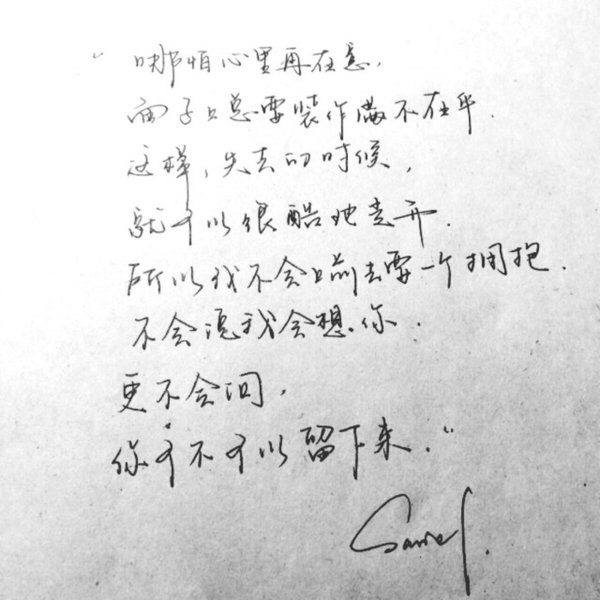 “哪怕心里再在意,
面子上总要装作满不在乎.
这样,失去的时候,
就可以很酷地走开.
所以我不会上前去要一个拥抱.
不会说我会想你.
更不会问,
你可不可以留下来.”